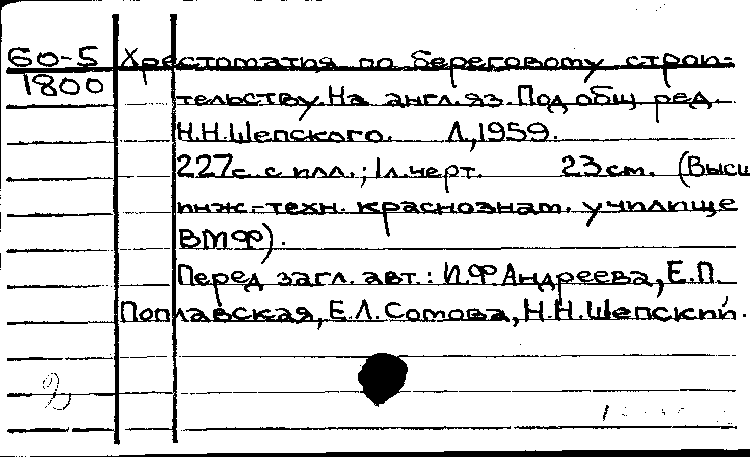 60-5 Хрестоматия по береговому строи-
1800
тельству. На англ. яз. Под общ ред.
Н.Н.Шепского. Л., 1959.
227с. с илл.; 1л.черт. 23см. (Высш
инж.-техн. краснознам. училище
ВМФ).
Перед загл. авт.: И.Ф.Андреева, Е.П.
Поплавская, Е.Л.Сомова, Н.Н.Шепский.
2